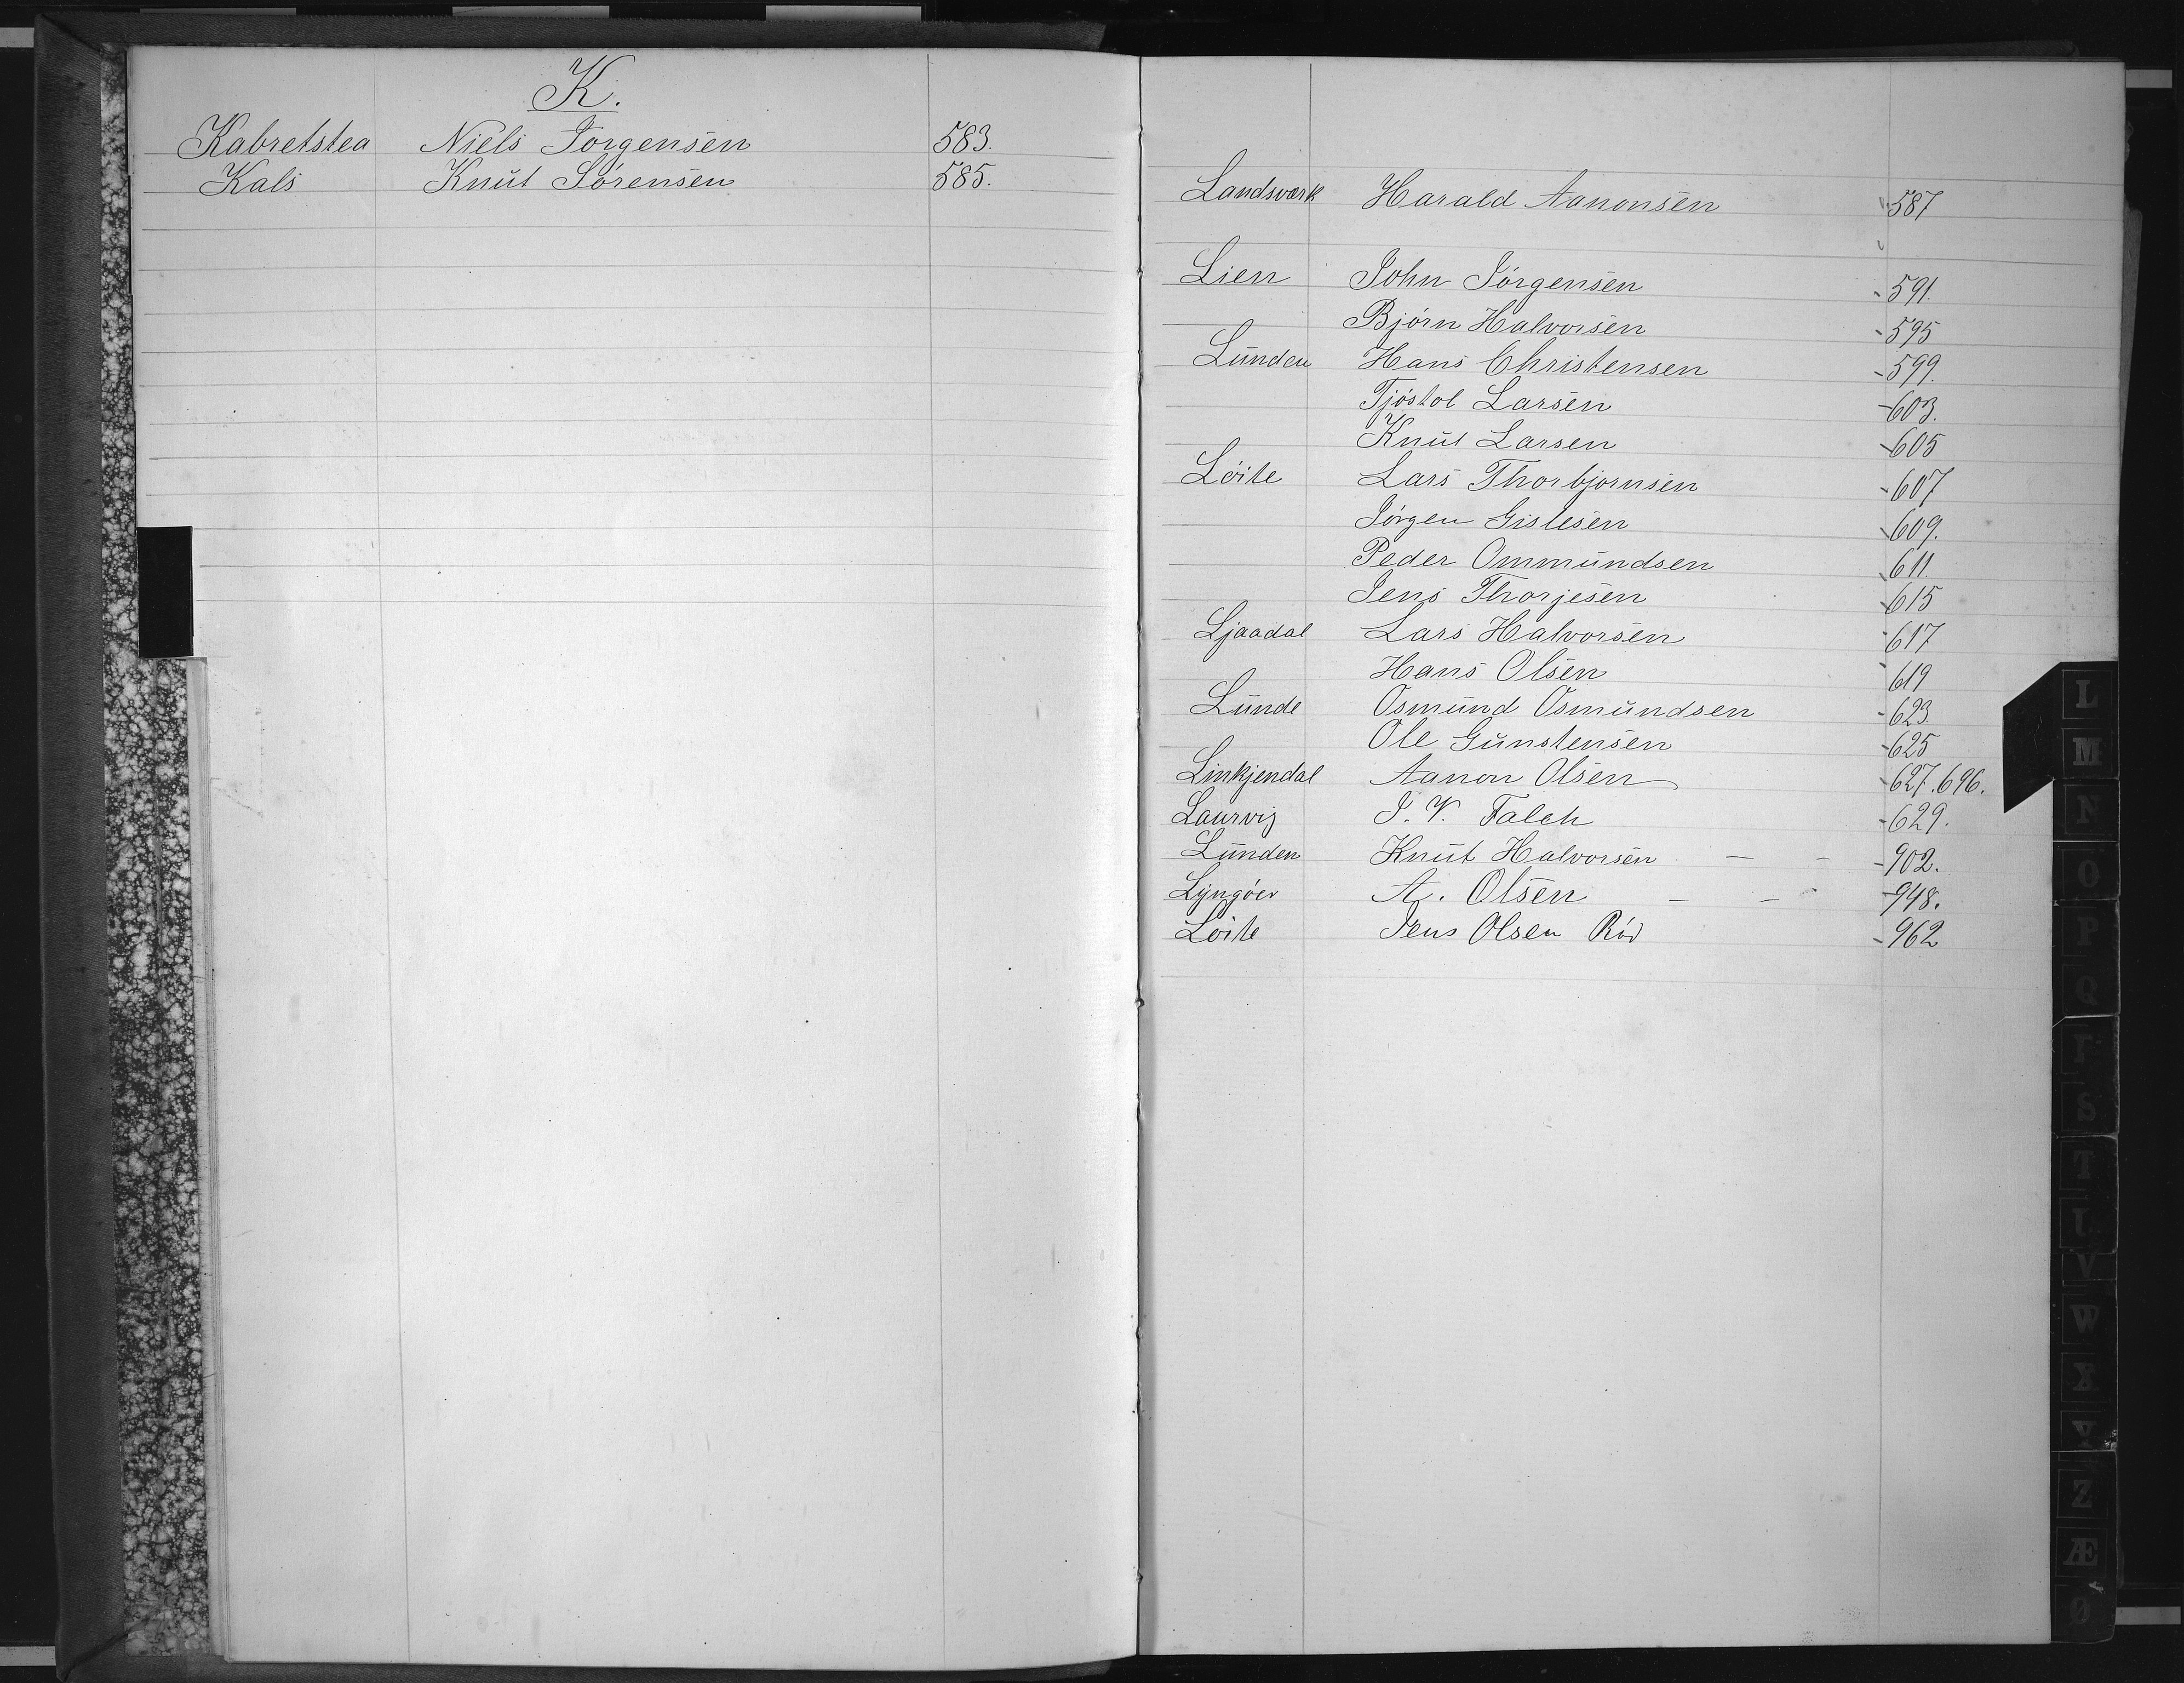 K.
Kabretstea Niels Jørgensen 583.
Kals Knut Sørensen 585.
Landsværk Harald Aanonsen 587
Lien John Jørgensen 591.
Bjørn Halvorsen 595
Lunden Hans Christensen 599.
Tjøstol Larsen 603.
Knut Larsen 605
Løite Lars Thorbjørnsen 607
Jørgen Gislesen 609.
Peder Ommundsen 611.
Jens Thorjesen 615
Ljaadal Lars Halvorsen 617
Hans Olsen 619
Lunde Osmund Osmundsen 623
Ole Gunstensen 625
Linkjendal Aanon Olsen 627.696.
Laurvig J. V. Falch 629.
Lunden Knut Halvorsen — — 902.
Lyngöer A. Olsen — — 948.
Løite Jens Olsen Rød 962
L
M
N
O
P
Q
S
T
V
W
X
Y
Z
Æ
Ø